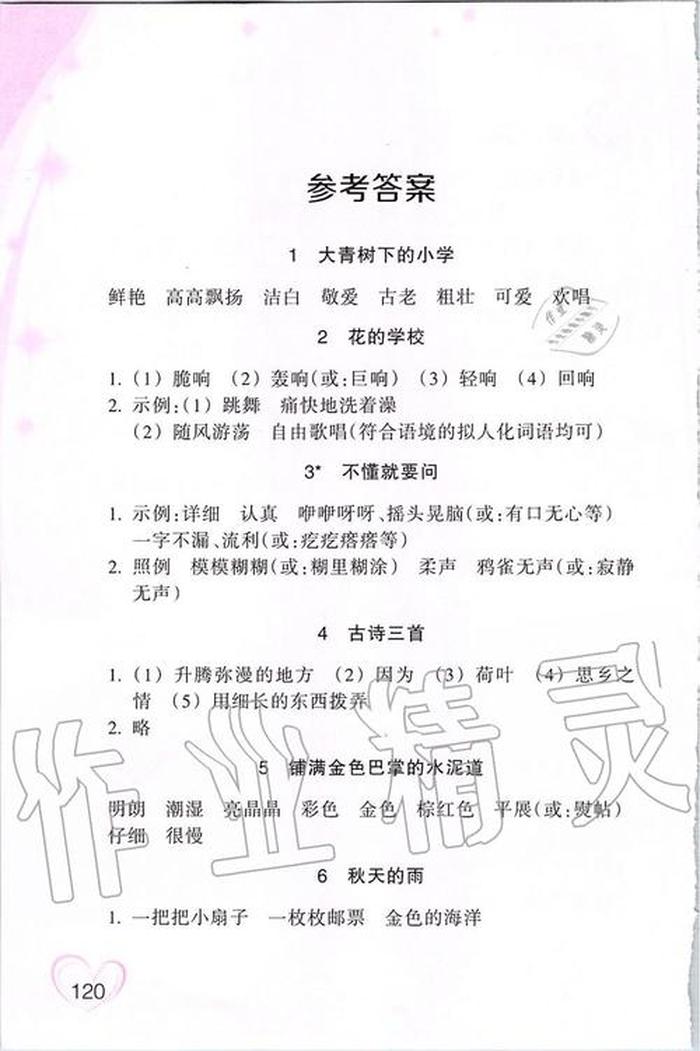 参考答案
1 大青树下的小学
鲜艳 高高飘扬 洁白 敬爱 古老 粗壮 可爱 欢唱
2 花的学校
1. (1) 脆响 (2) 轰响(或:巨响) (3) 轻响 (4) 回响
2. 示例:(1) 跳舞 痛快地洗着澡
(2) 随风游荡 自由歌唱(符合语境的拟人化词语均可)
3* 不懂就要问
1. 示例:详细 认真 咿咿呀呀、摇头晃脑(或:有口无心等)
一字不漏、流利(或:疙疙瘩瘩等)
2. 照例 模模糊糊(或:糊里糊涂) 柔声 鸦雀无声(或:寂静
无声)
4 古诗三首
1. (1) 升腾弥漫的地方 (2) 因为 (3) 荷叶 (4) 思乡之
情 (5) 用细长的东西拨弄
2. 略
5 铺满金色巴掌的水泥道
明朗 潮湿 亮晶晶 彩色 金色 棕红色 平展(或:熨帖)
仔细 很慢
6 秋天的雨
1. 一把把小扇子 一枚枚邮票 金色的海洋
120
作业精灵